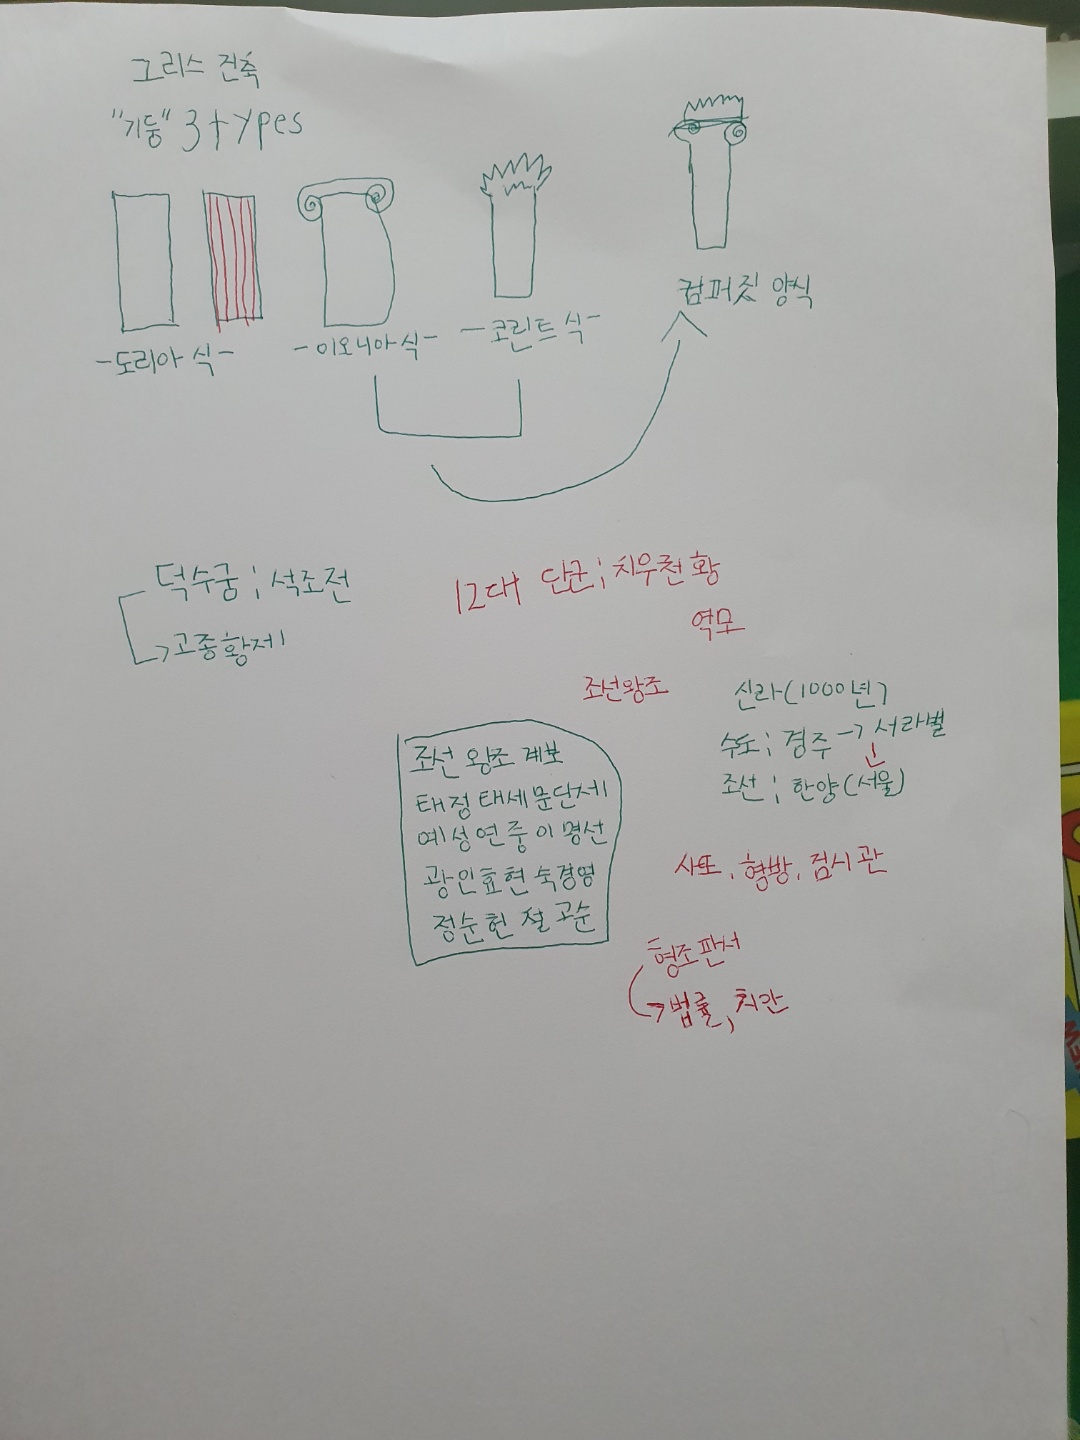 그리스 건축
"기둥" 3 types
-도리아 식-
-이오니아 식-
-코린트 식-
컴퍼짓 양식
덕수궁 ; 석조전
고종황제
12대 단군 ; 치우천황
역모
조선왕조
신라 (1000년)
수도 ; 경주 → 서라벌
조선 ; 한양 (서울)
조선 왕조 계보
태정태세문단제
예성연중이명선
광인효현숙경영
정순헌철고순
사또, 형방, 검시관
형조판서
법률, 치안